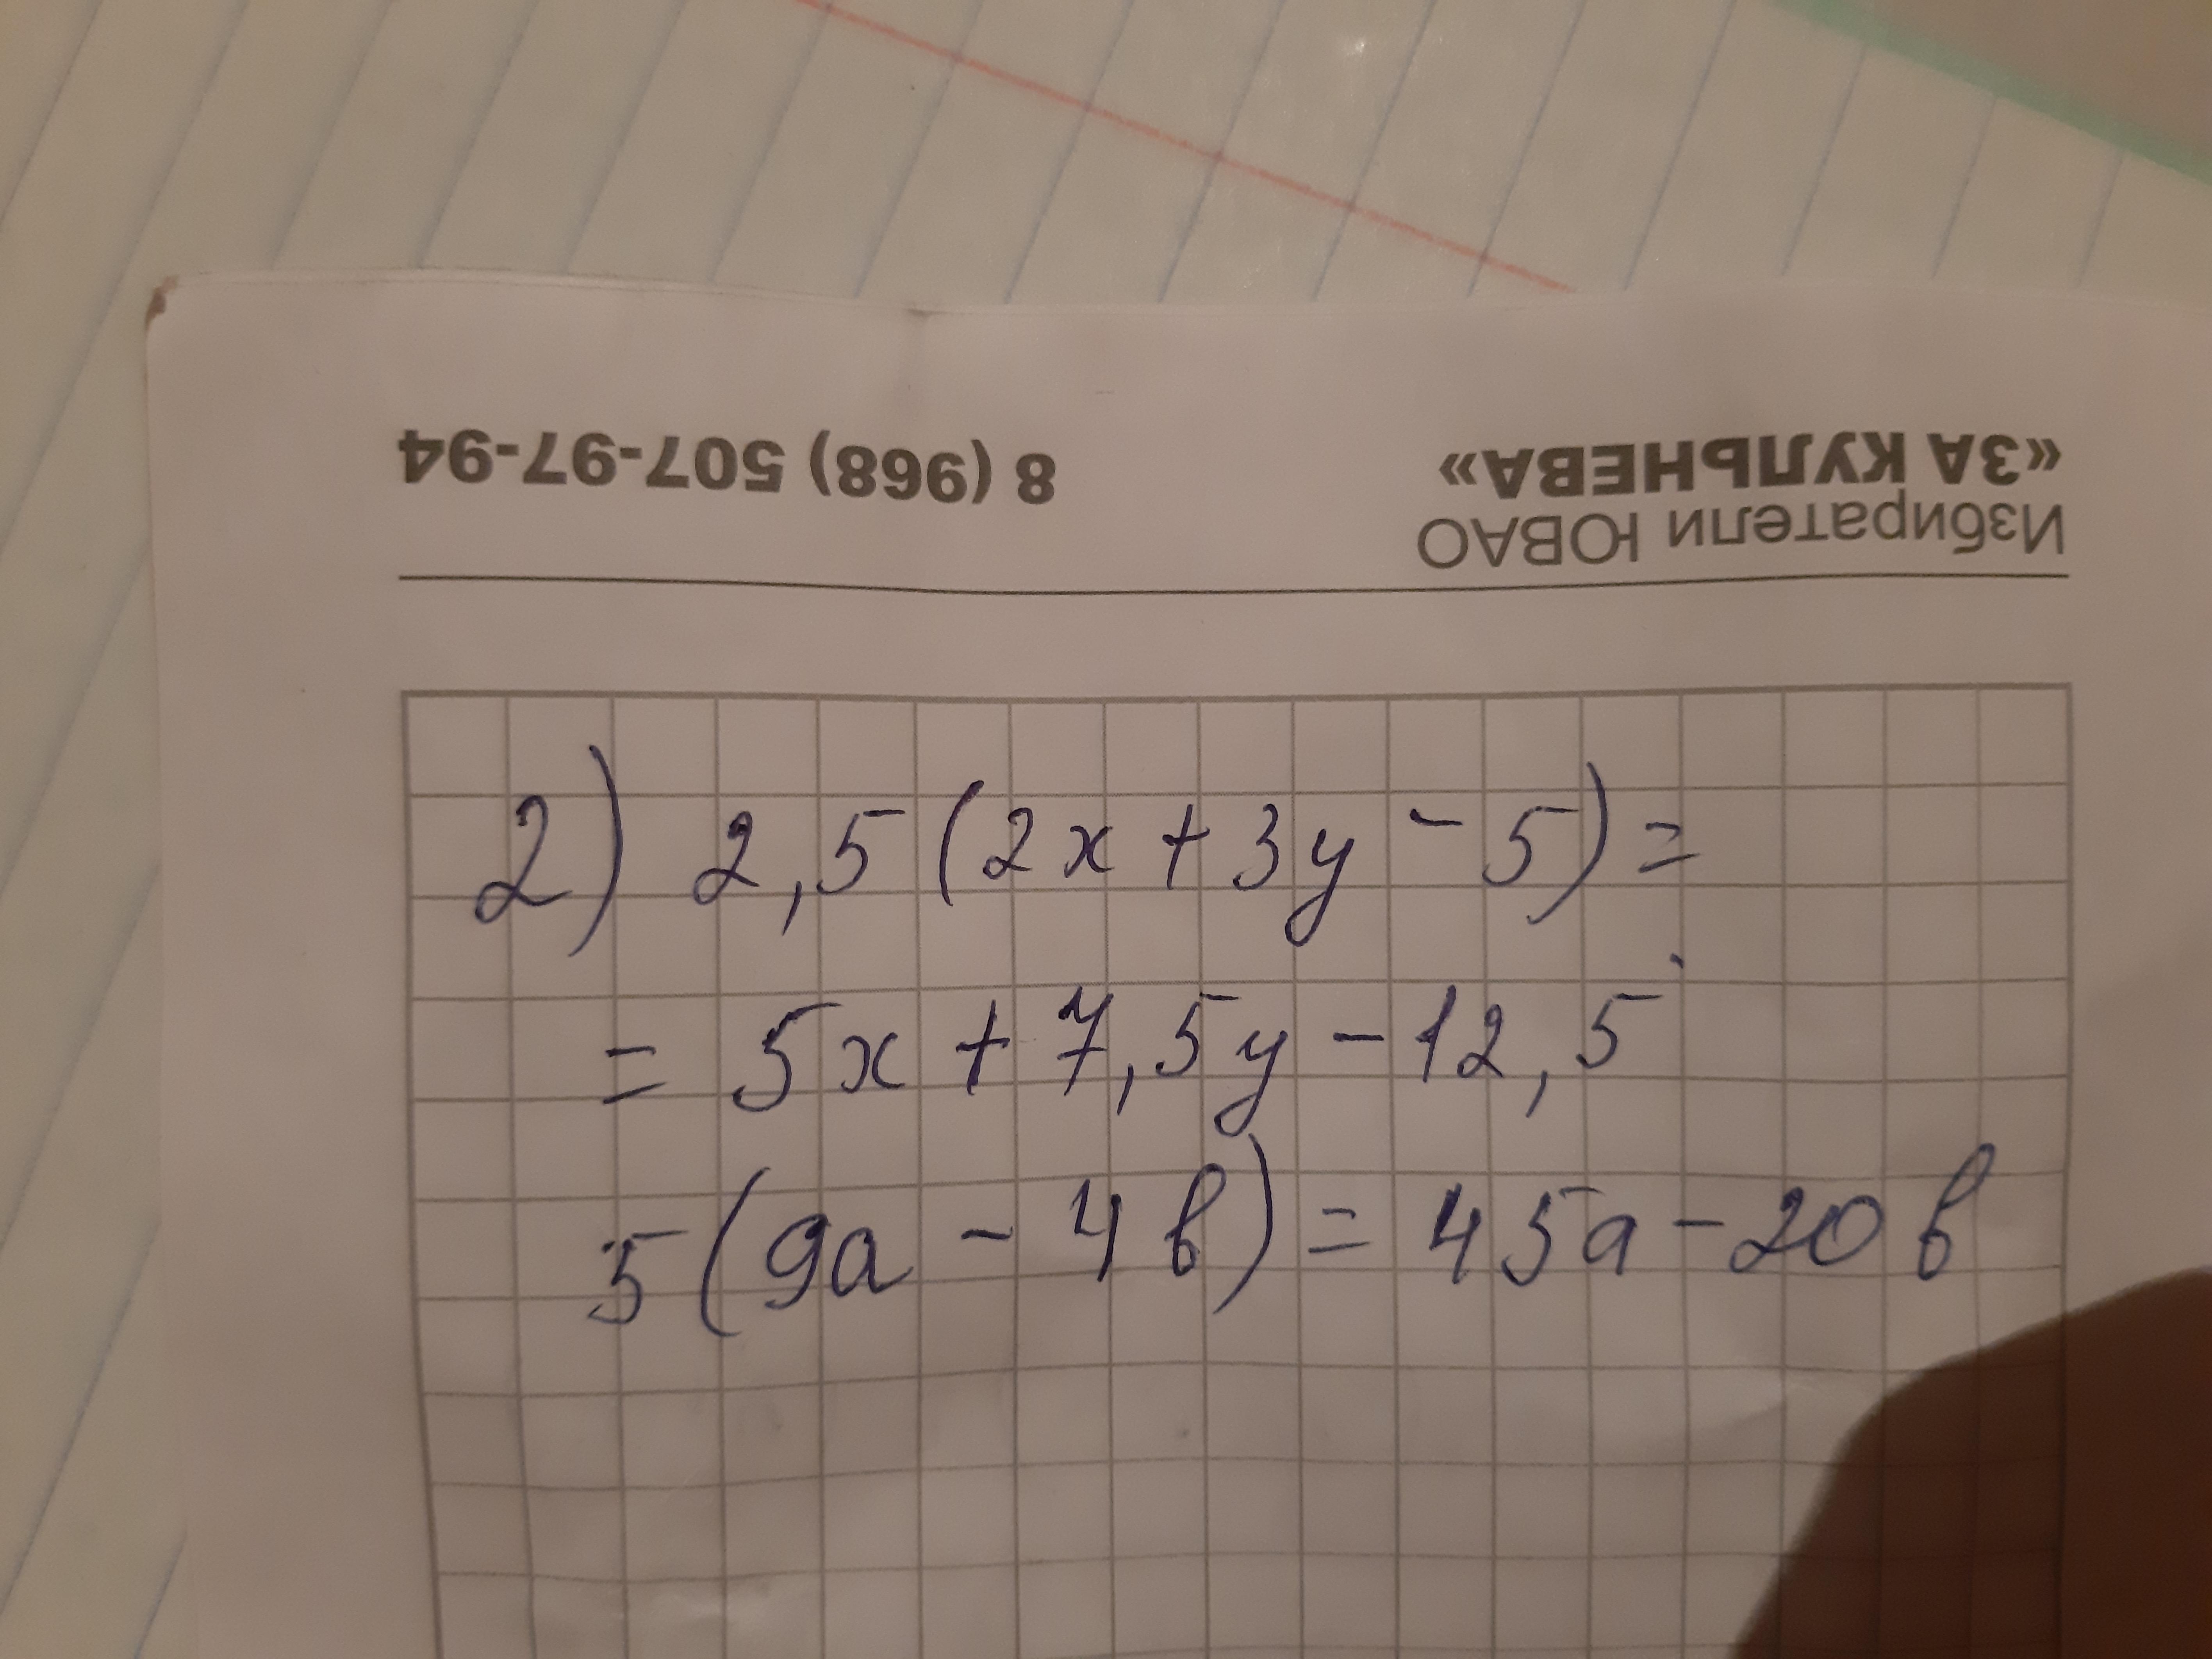 8 (968) 507-97-94
«ЗА КУЛЬНЕВА»
Избиратели ЮВАО
2) 2,5 (2x + 3y - 5) =
= 5x + 7,5y - 12,5
5 (9a - 4b) = 45a - 20b